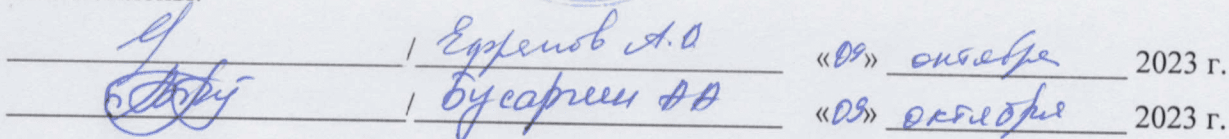 / Ефремов А.О «09» октября 2023 г.
/ Бусаргин АА «09» октября 2023 г.